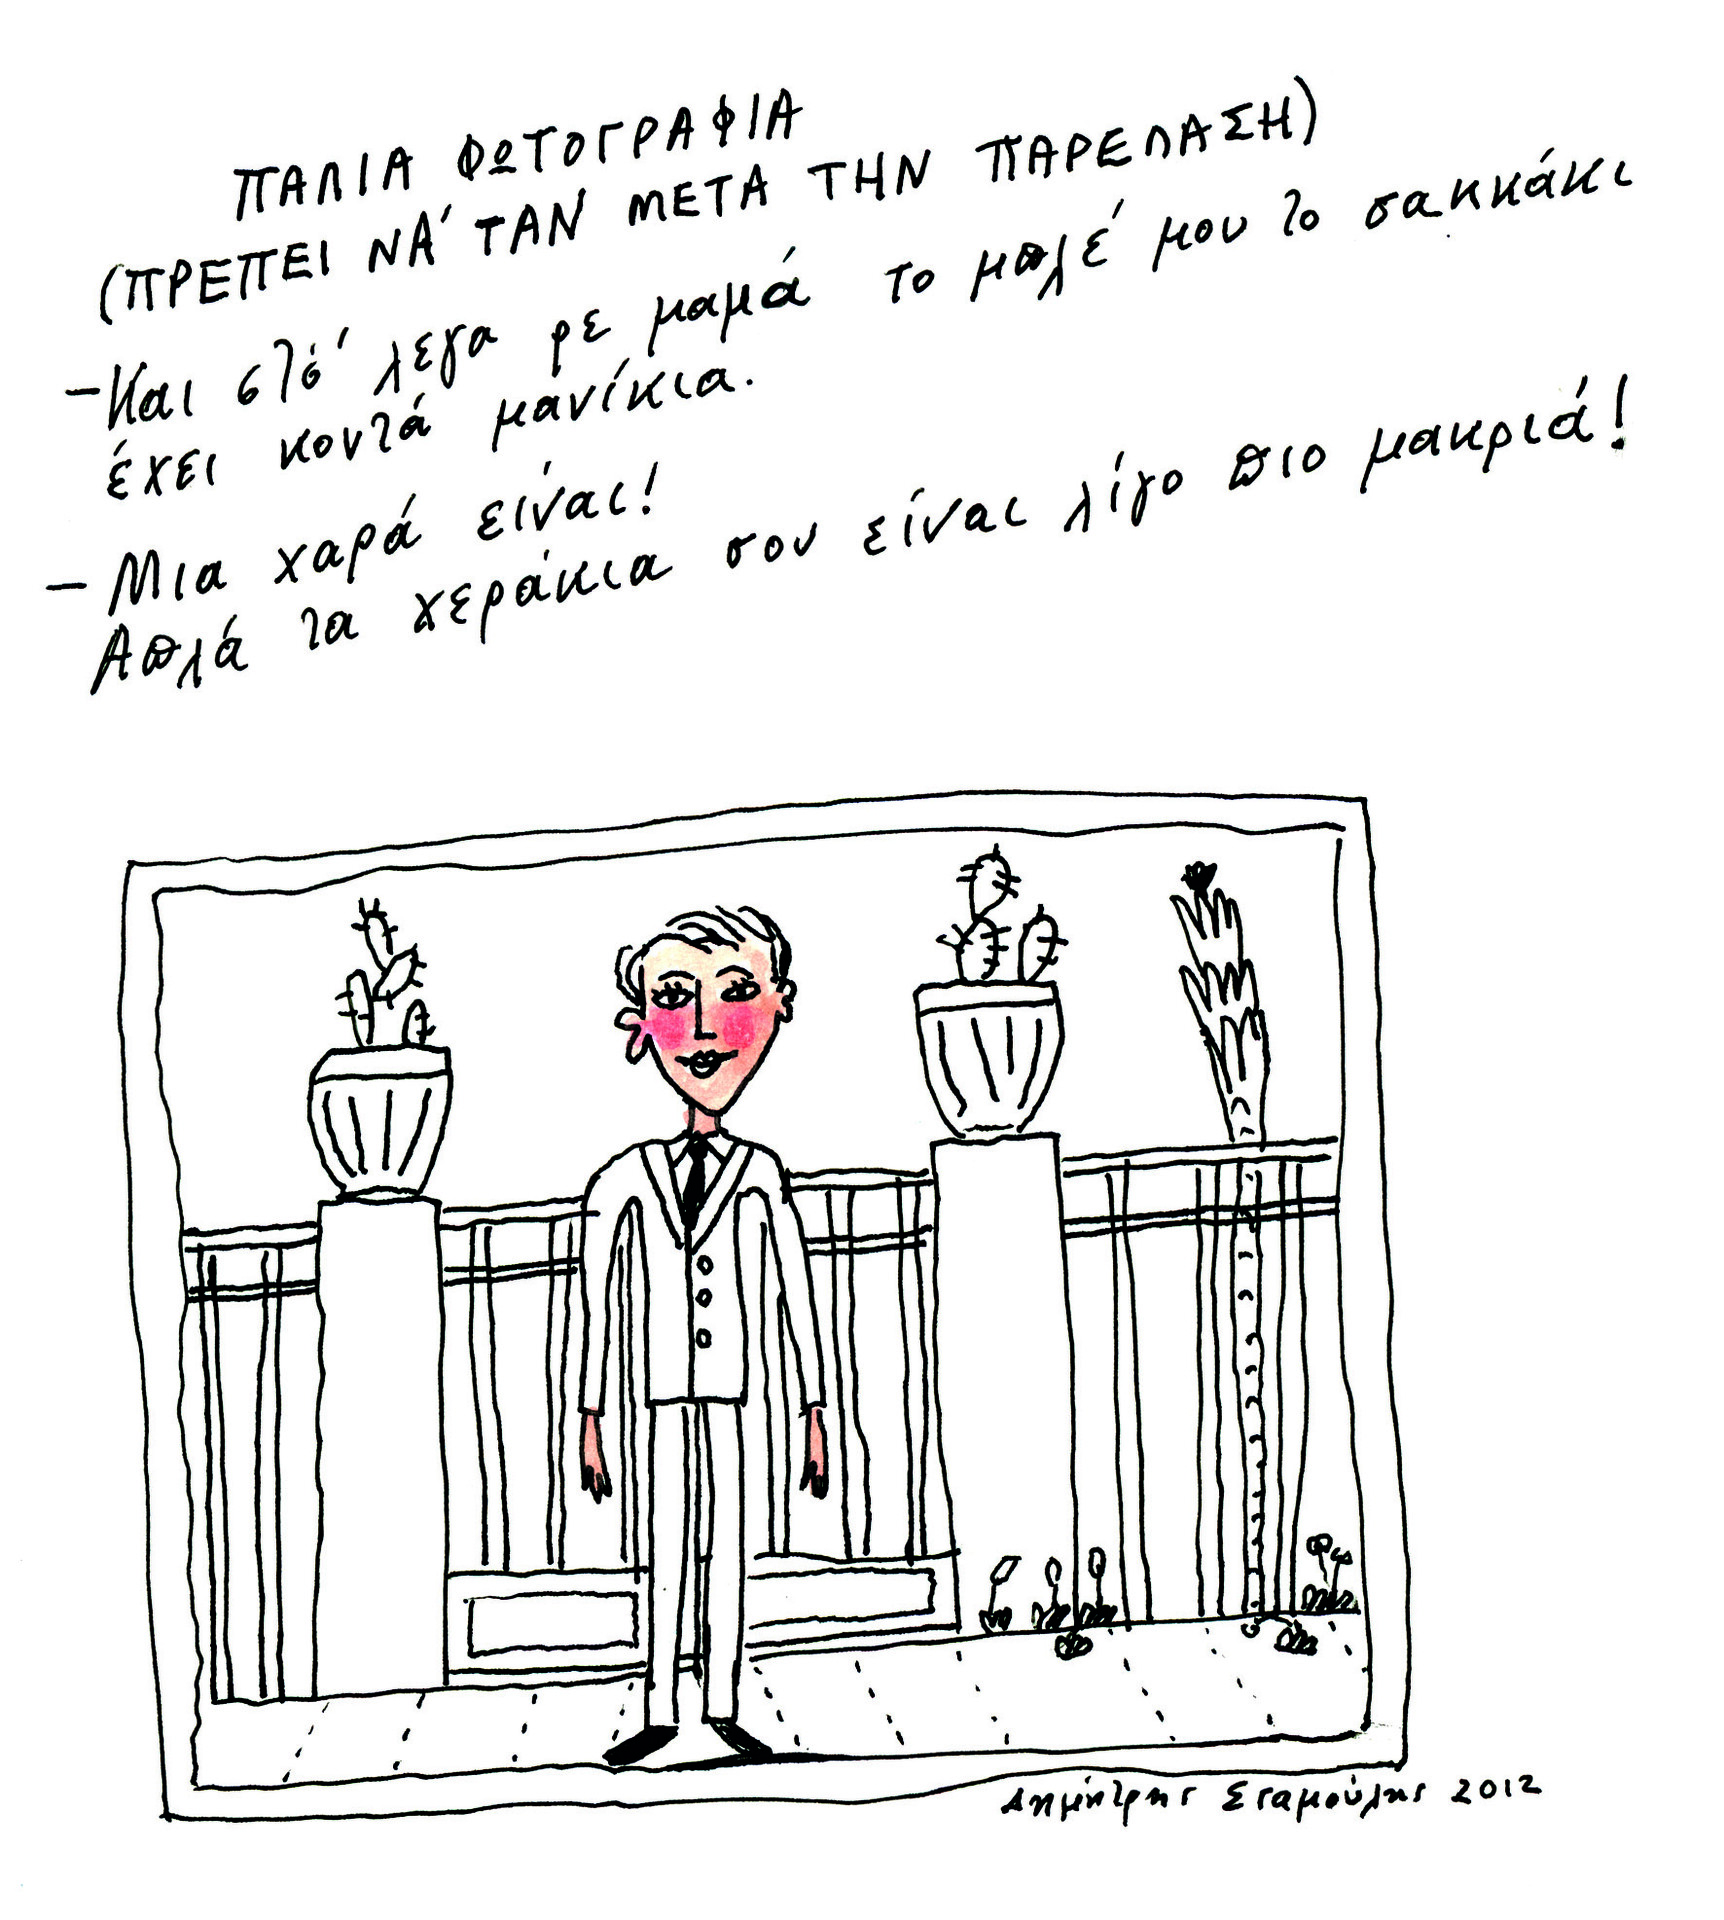 ΠΑΛΙΑ ΦΩΤΟΓΡΑΦΙΑ
(ΠΡΕΠΕΙ ΝΑ' ΤΑΝ ΜΕΤΑ ΤΗΝ ΠΑΡΕΛΑΣΗ)
-Και στό' λεγα ρε μαμά το μπλέ μου το σακκάκι
έχει κοντά μανίκια.
- Μια χαρά είναι!
Απλά τα χεράκια σου είναι λίγο πιο μακριά!
Δημήτρης Σταμούλης 2012